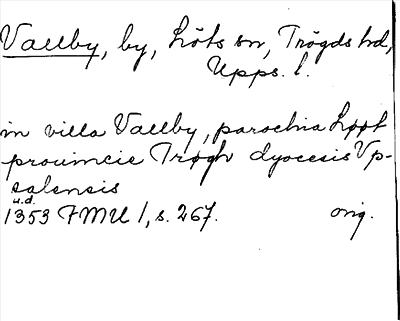 Vallby, by, Löts sn, Trögds hd,
Upps. l.
in villa Vallby, parochia Løøt
prouincie Trøgh dyocesis Vp-
salensis
u.d.
1353 FMU 1, s. 267. orig.